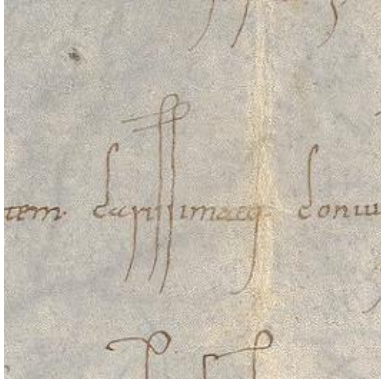 tem· carissimaeq· coniu